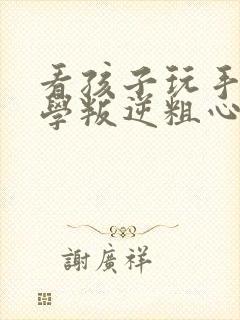 看孩子玩手
學叛逆粗心
謝廣祥